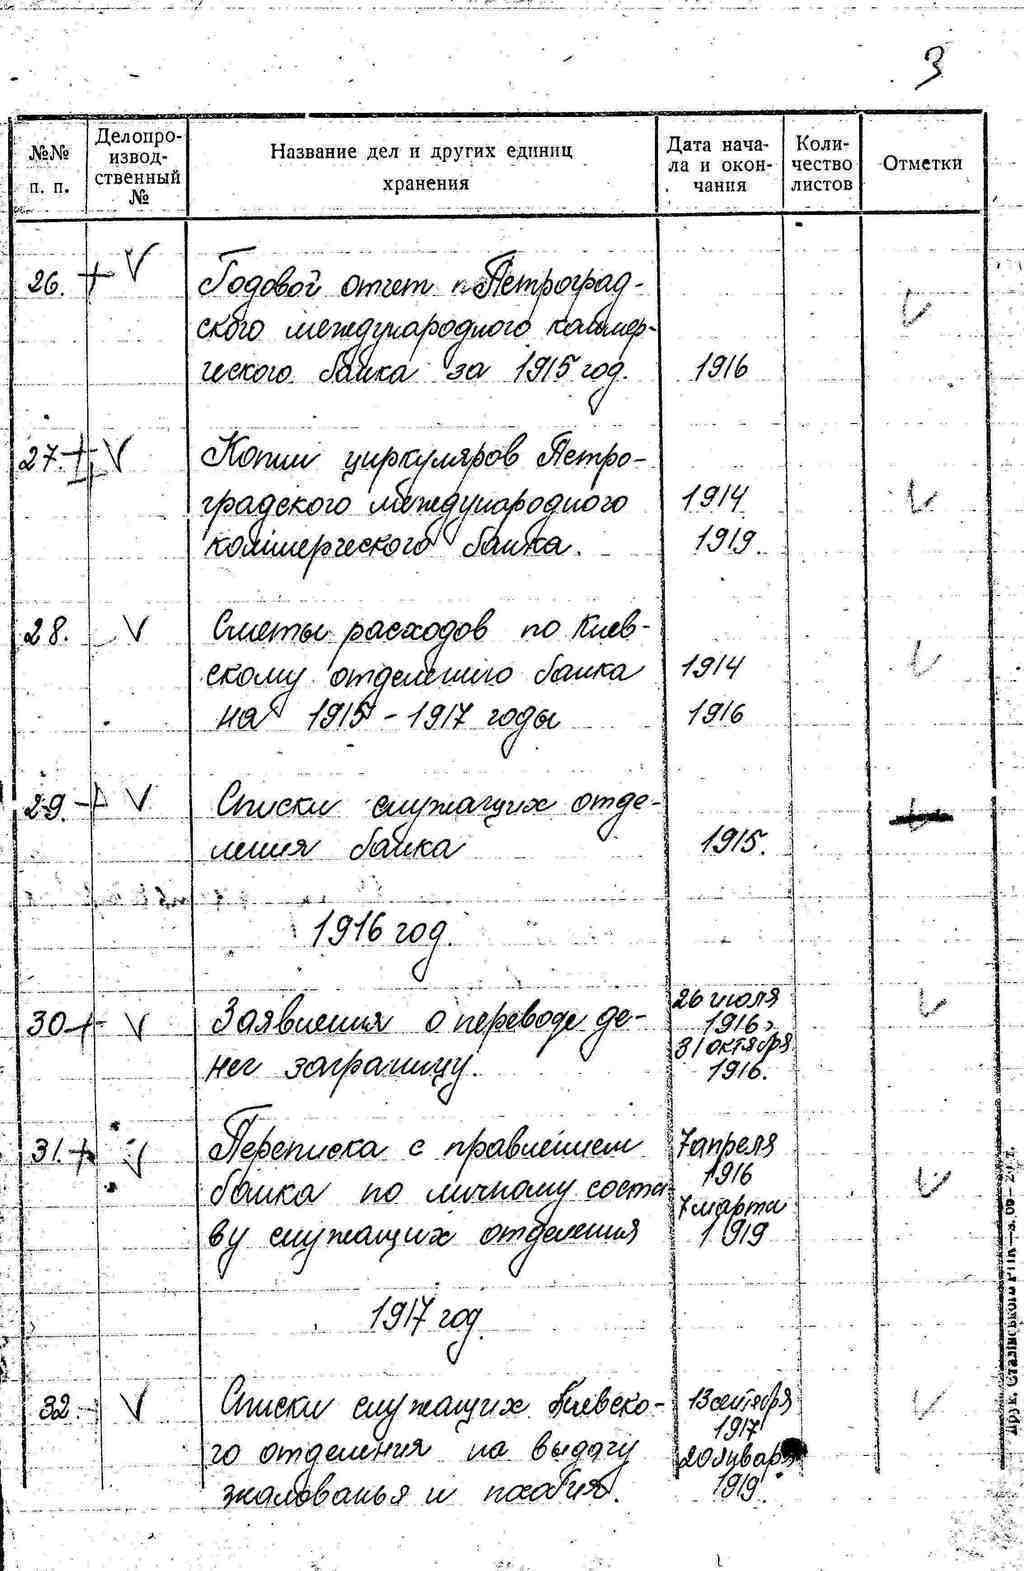 3
№№ п. п.
Делопро-
извод-
ственный
№
Название дел и других единиц
хранения
Дата нача-
ла и окон-
чания
Коли-
чество
листов
Отметки
26. + V Годовой отчет Петроград-
ского международного коммер-
ческого банка за 1915 год. 1916
27. + V Копии циркуляров Петро-
градского международного 1914
коммерческого банка. 1919.
28. V Сметы расходов по Киев-
скому отделению банка 1914
на 1915 - 1917 годы 1916
29. + V Списки служащих отде-
ления банка 1915.
1916 год.
30 + V Заявления о переводе де-
нег заграницу.
26 июля
1916,
31 октября
1916.
31. + V Переписка с правлением
банка по личному соста
ву служащих отделения
7 апреля
1916
7 марта
1919
1917 год.
32. V Списки служащих Киевско-
го отделения на выдачу
жалованья и пособия.
13 сентября
1917
20 января
1919.